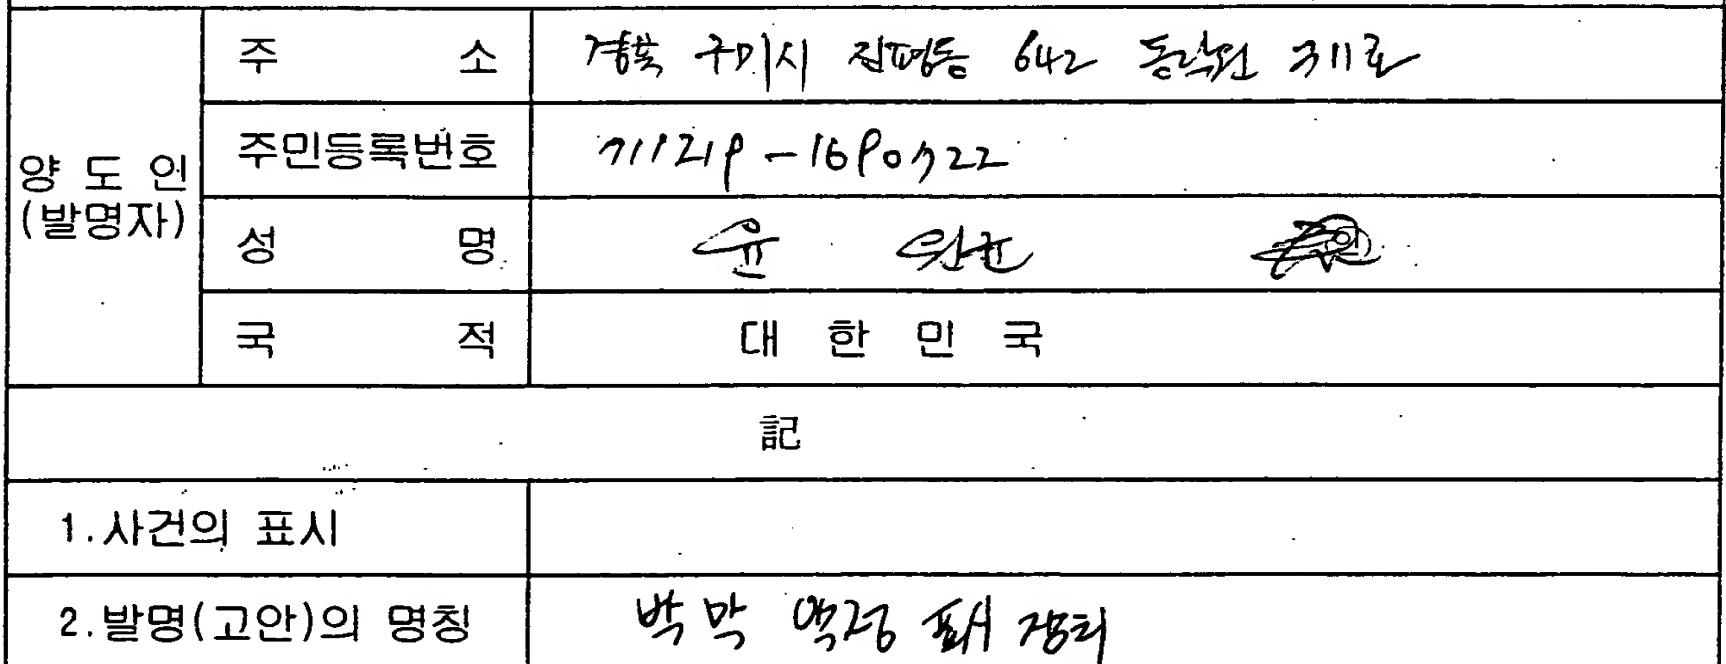 주 소 경북 구미시 진평동 642 동락원 311호
양 도 인
(발명자)
주민등록번호 711219-1690722
성 명 윤 완균 (인)
국 적 대 한 민 국
記
1.사건의 표시
2.발명(고안)의 명칭 박막 액정 표시 장치